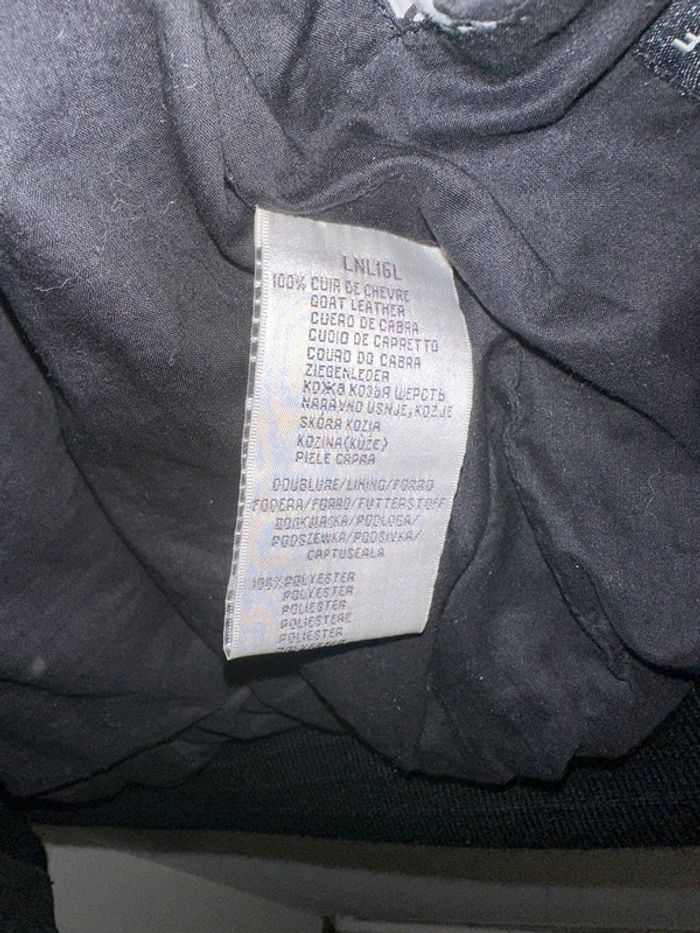 LNL16L
100% CUIR DE CHEVRE
GOAT LEATHER
CUERO DE CABRA
CUOIO DE CAPRETTO
COURO DO CABRA
ZIEGENLEDER
КОЖА КОЗЬЯ ШЕРСТЬ
NARAVNO USNJE, KOZJE
SKÓRA KOZIA
KOZINA(KŮŽE)
PIELE CAPRA
DOUBLURE/LINING/FORRO
FODERA/FORRO/FUTTERSTOFF
PODLOGA/
PODSZEWKA/PODSIVKA/
CAPTUSEALA
100% POLYESTER
POLYESTER
POLIESTER
POLIESTERE
POLIESTER
POLYESTER